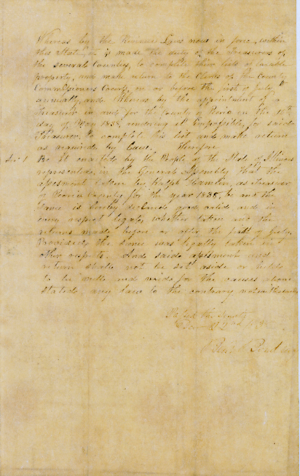 Whereas by the Revenue Laws now in force within
this State, it is made the duty of the Treasurers of
the several Counties, to complete their lists of taxable
property, and make return to the Clerks of the County
Commissioners Courts, on or before the first of July,
annually, and Whereas by the appointment of a
Treasurer in and for the County of on the
day of May 1835, rendering it impossible for said
Treasurer, to complete his list and make return
as required by Law, Therefore
Sec 1 Be it enacted by the People of the State of Illinois
represented in the General Assembly That the
assessment taken by Joseph as treasurer
of County for the year 1835, be and the
same is hereby declared good and valid and in
every respect legal, whether taken and the
returns made before or after the first of July
Provided the same was legally taken in
other respects. And said assessment and
return shall not be set aside or held
to be null and void for the causes above
stated, any law to the contrary notwithstanding